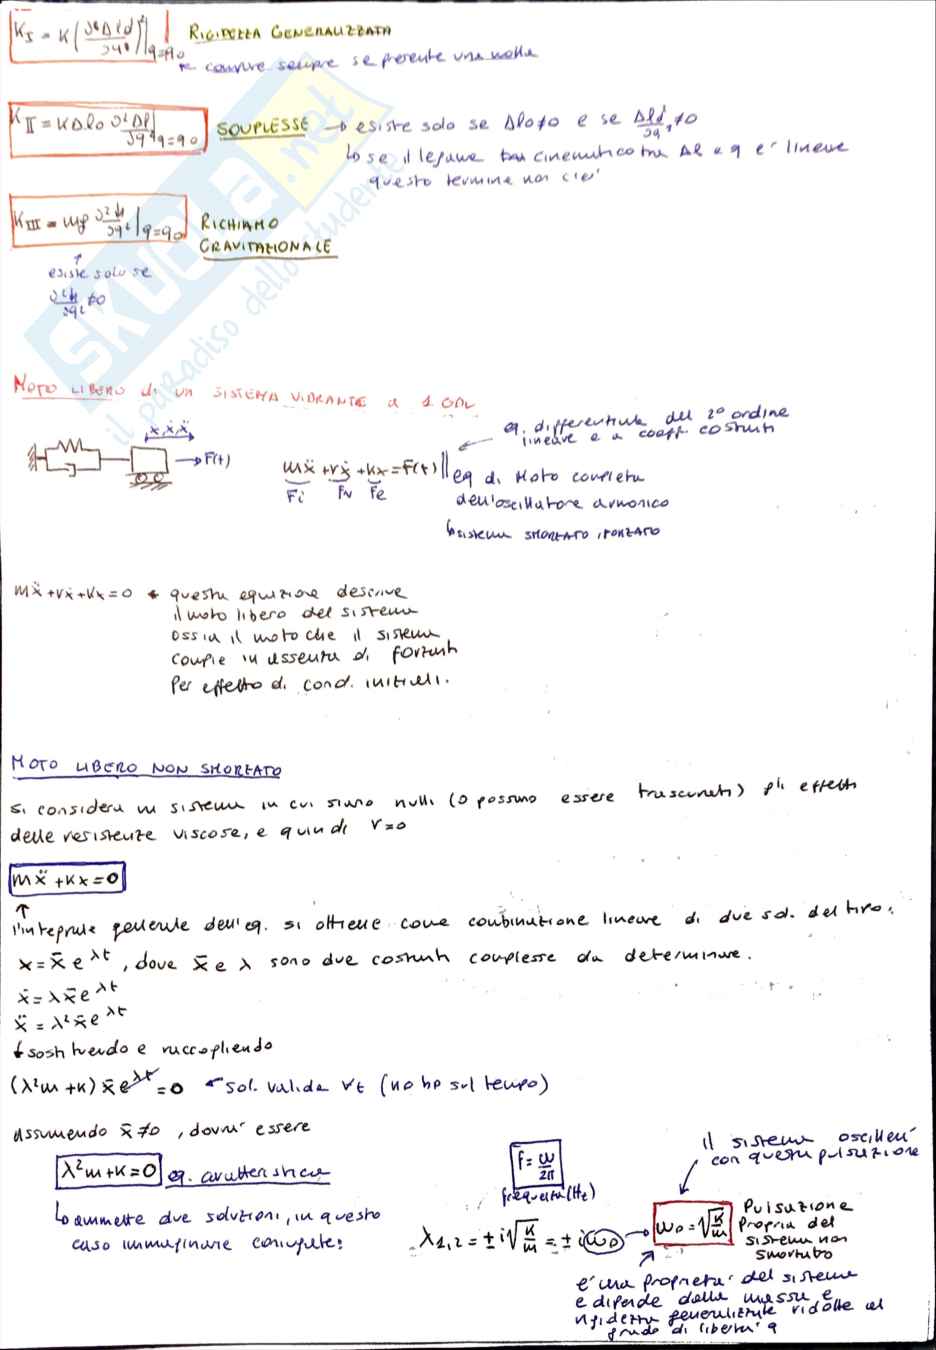 K_I = K(∂Δld/∂q)²|q=q0 RIGIDEZZA GENERALIZZATA
compare sempre se presente una molla
K_II = KΔl0 ∂²Δl/∂q²|q=q0 SOUPLESSE → esiste solo se Δl0≠0 e se ≠0
↳ se il legame cinematico tra Δl e q e' lineare
questo termine non c'e'
K_III = mg ∂²h/∂q²|q=q0 RICHIAMO
GRAVITAZIONALE
↑
esiste solo se
∂²h/∂q² ≠0
SKUOLA.net
il paradiso dello studente
MOTO LIBERO di un SISTEMA VIBRANTE a 1 GDL
x,ẋ,ẍ
→F(t)
mẍ+rẋ+kx=F(t)
Fi Fv Fe
eq. differenziale del 2° ordine
lineare e a coeff. costanti
eq di Moto completa
dell'oscillatore armonico
↳sistema SMORZATO, FORZATO
mẍ+rẋ+kx=0 ← questa equazione descrive
il moto libero del sistema
ossia il moto che il sistema
compie in assenza di forzanti
Per effetto di cond. iniziali.
MOTO LIBERO NON SMORZATO
Si considera un sistema in cui siano nulli (o possano essere trascurati) gli effetti
delle resistenze viscose, e quindi r=0
mẍ+kx=0
↑
l'integrale generale dell'eq. si ottiene come combinazione lineare di due sol. del tipo:
x=x̄e^λt, dove x̄ e λ sono due costanti complesse da determinare.
ẋ=λx̄e^λt
ẍ=λ²x̄e^λt
↓sostituendo e raccogliendo
(λ²m+k)x̄e^λt=0 ← sol. valida ∀t (no hp sul tempo)
assumendo x̄≠0, dovra' essere
λ²m+k=0 eq. caratteristica
↳ammette due soluzioni, in questo
caso immaginarie coniugate:
f=ω/2π
frequenza (Hz)
λ1,2=±i√(k/m)=±iω0→ω0=√(k/m)
il sistema oscillera'
con questa pulsazione
Pulsazione
Propria del
sistema non
smorzato
e' una proprieta' del sistema
e dipende dalla massa e
rigidezza generalizzate ridotte al
grado di liberta' q